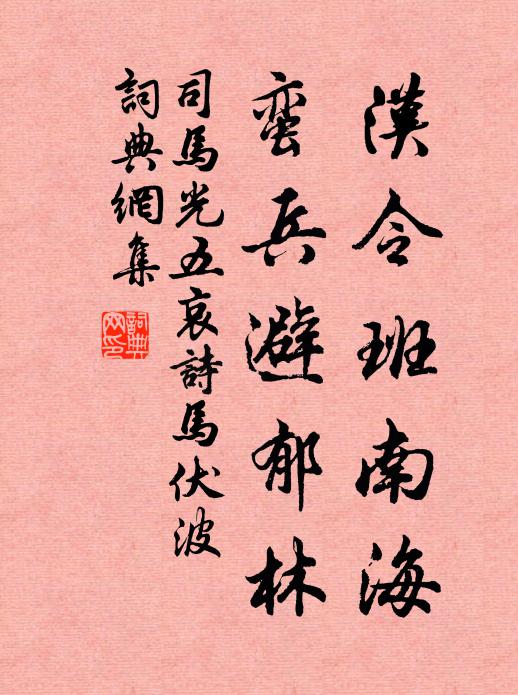 漢令班南海
蛮兵避郁林
司馬光五哀詩馬伏波
詞典網集
詞典
网印